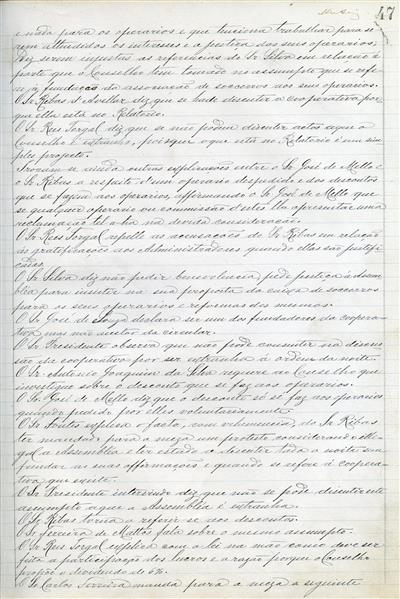 47
e nada para os operarios e que tenciona trabalhar para se-
rem attendidos os interesses e a justiça dos seus operarios,
diz serem injustas as referencias do Sr Silva em relação á
parte que o Conselho tem tomado no assumpto que se refe
re á fundação da associação de soccorros aos seus operarios.
O Sr Ribas d'Avellar diz que se pode discutir a cooperativa por
que ella está no Relatorio.
O Sr Reis Torgal diz que se não podem discutir actos a que o
Conselho é extranho, poisque o que está no Relatorio é um sim
ples projecto.
Trocam-se ainda outras explicações entre o Sr José de Mello e
o Sr Ribas a respeito d'um operario despedido e dos descontos
que se fazem aos operarios, affirmando o Sr José de Mello que
se qualquer operario ou commissão d'estes lhe apresentar uma
reclamação na devida consideração.
O Sr Reis Torgal repelle as accusações do Sr Ribas em relação
ás gratificações aos Administradores quando ellas são justifi
cadas.
O Sr Silva diz não pedir benevolencia, pede justiça á Assem
bléa para insistir na sua proposta da caixa de soccorros
para os seus operarios e reformas dos mesmos.
O Sr José de Souza declara ser um dos fundadores da coopera-
tiva mas não auctor da circular.
O Sr Presidente observa que não póde consentir na discus
são da cooperativa por ser extranha á ordem da noite.
O Sr Antonio Joaquim da Silva requere ao Conselho que
investigue sobre o desconto que se faz aos operarios.
O Sr José de Mello diz que o desconto só se faz aos operarios
quando pedido por elles voluntariamente.
O Sr Santos explica o facto, com vehemencia, do Sr Ribas
ter mandado para a meza um protesto considerando ille-
gal a Assembléa e ter estado a discutir toda a noite sem
fundar as suas affirmações e quando se refere á coopera-
tiva que existe.
O Sr Presidente intervindo diz que não se pode discutir este
assumpto a que a Assembléa é extranha.
O Sr Ribas torna a referir-se aos descontos.
O Sr Ferreira de Mattos fala sobre o mesmo assumpto.
O Sr Reis Torgal explica com a lei na mão como deve ser
feita a participação dos lucros e a razão porque o Conselho
propõe o dividendo de 5%.
O Sr Carlos Ferreira manda para a meza a seguinte